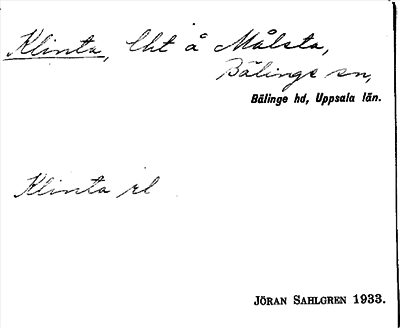 Klinta, lht å Målsta,
Bälinge sn,
Bälinge hd, Uppsala län.
Klinta rl
JÖRAN SAHLGREN 1933.